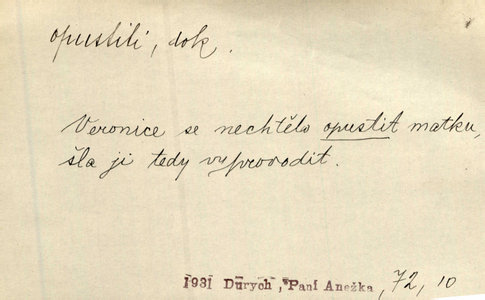 opustiti, dok.
Veronice se nechtělo opustit matku,
šla ji tedy vyprovodit.
1931 Durych, Paní Anežka, 72, 10